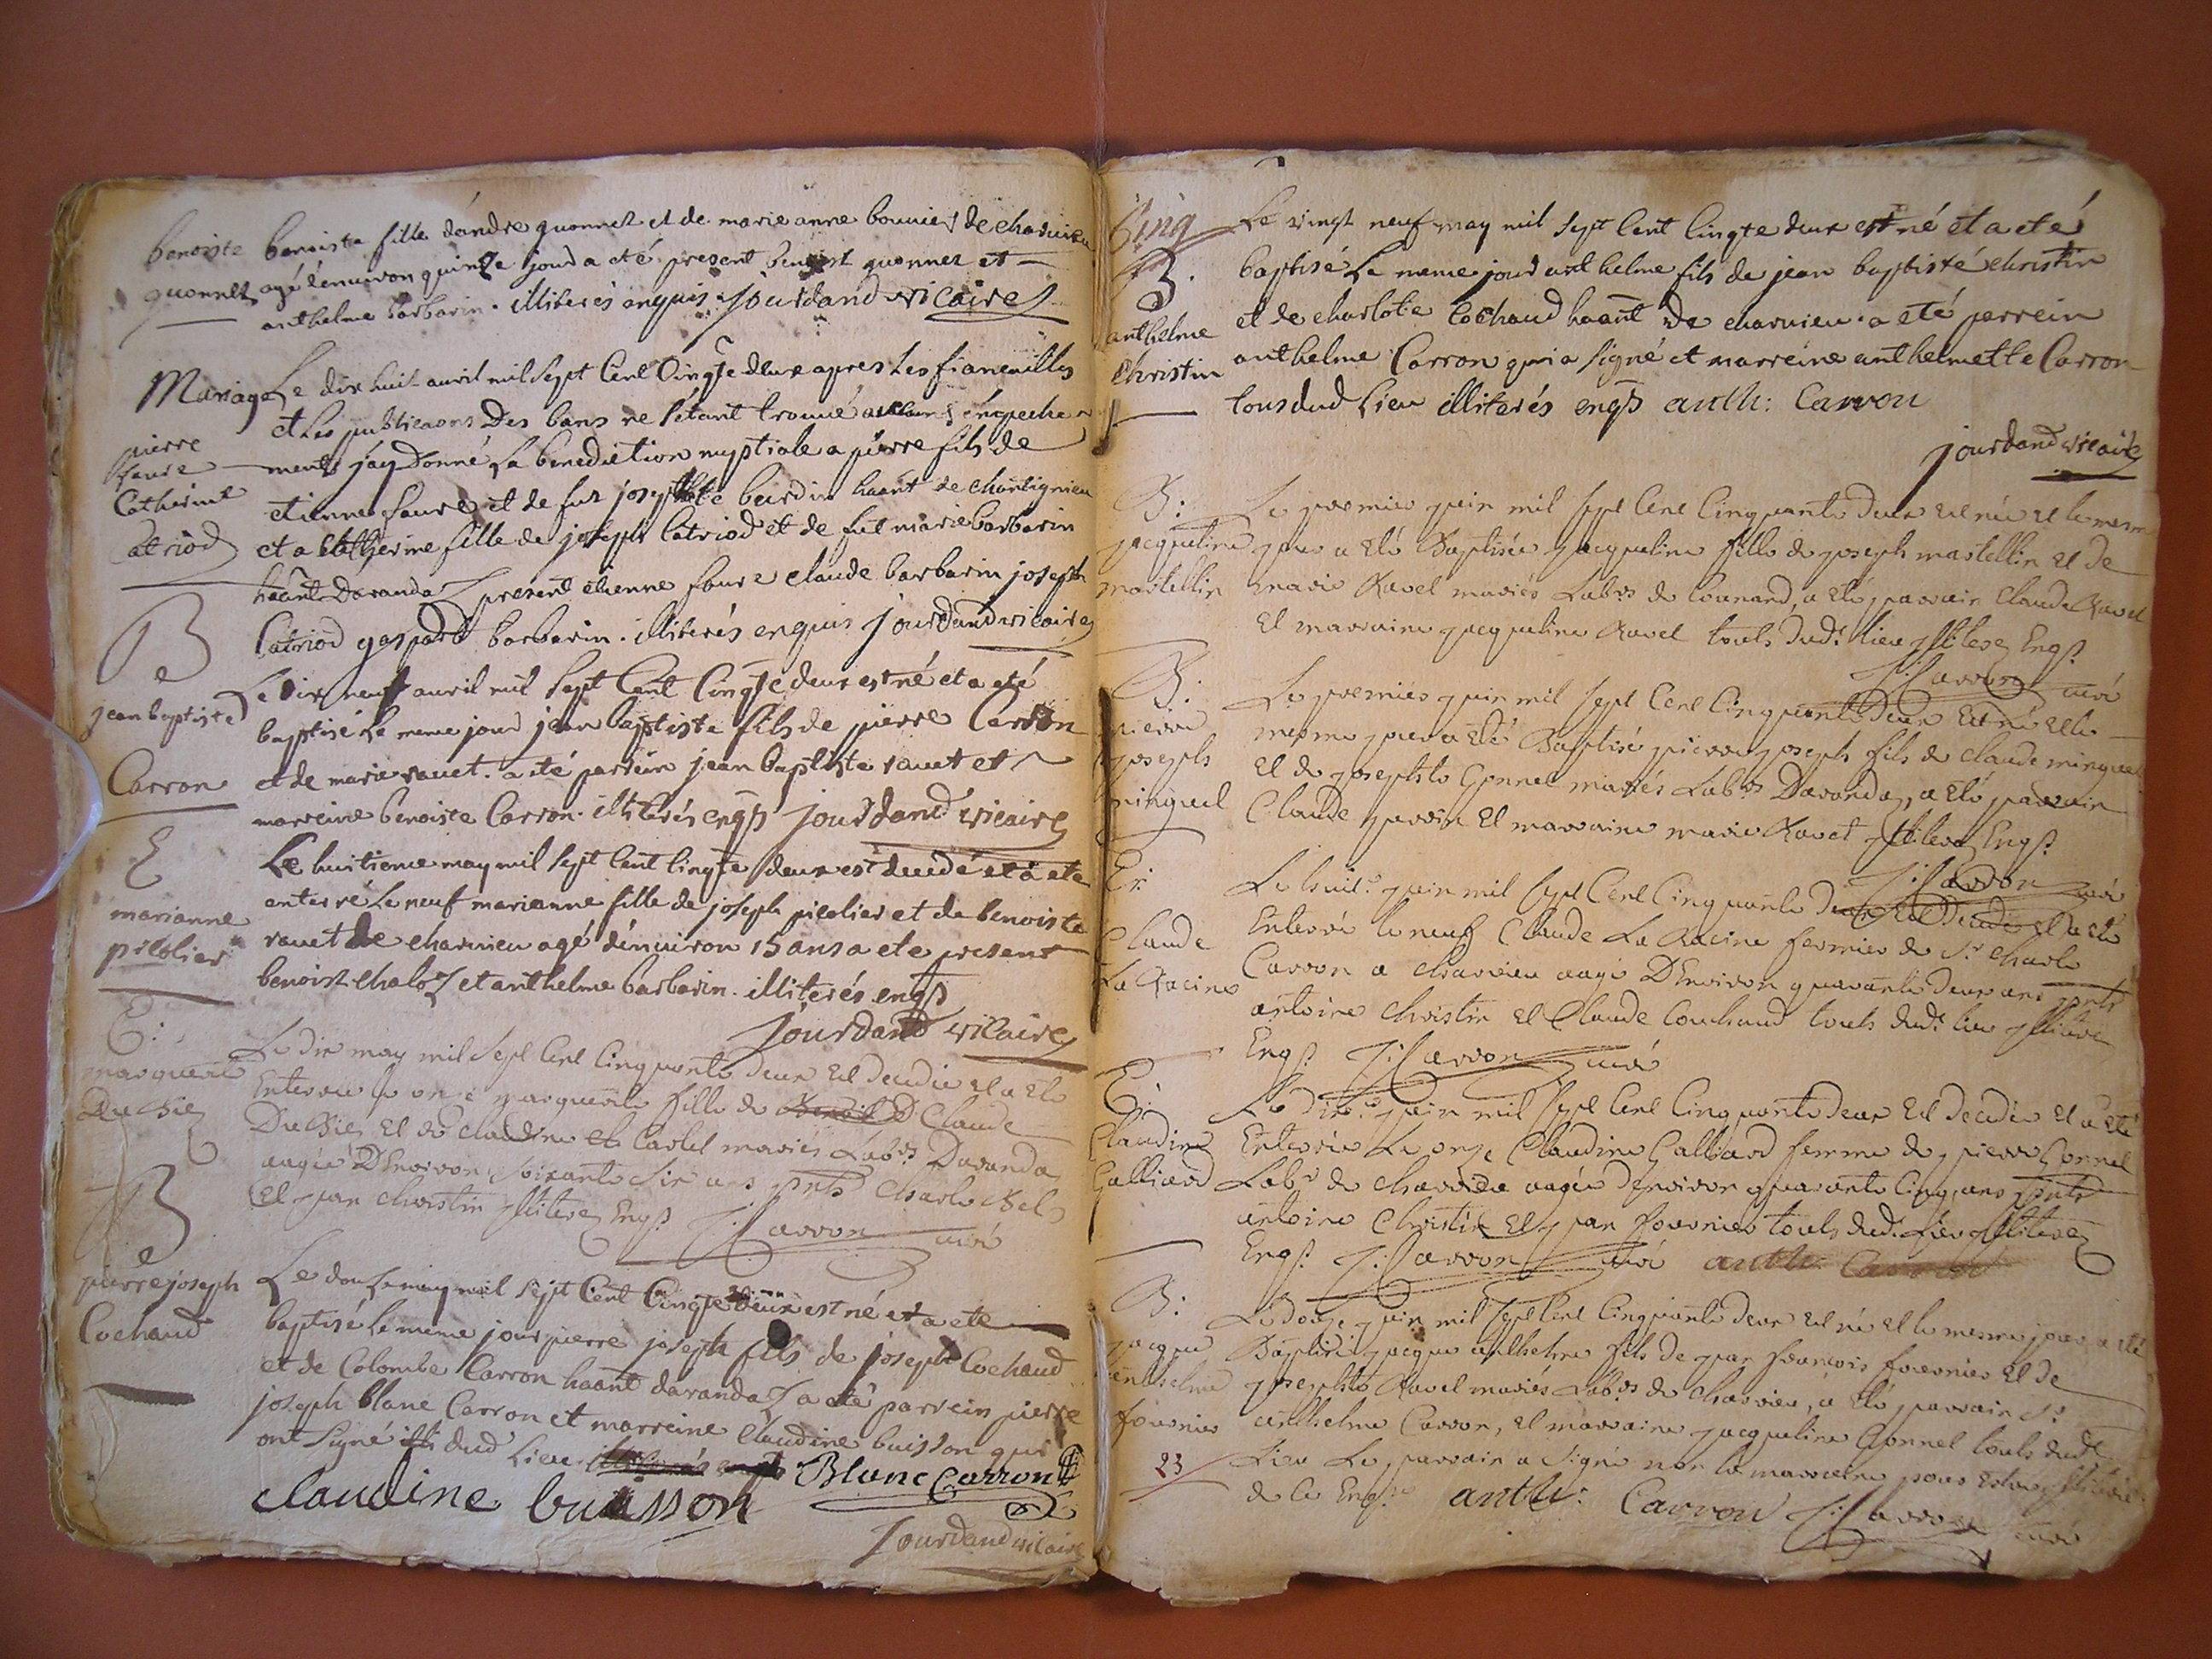 benoiste
quonnet
benoiste fille dandre quonnet et de marie anne bouvier de charvieu
agé denuiron quinze jour a eté present benoist quonnet et
anthelme barbarin . illiterés enquis . Jourdand vicaire
Mariage
pierre
faure
Catherine
Catriod
Le dix huit auril mil sept Cent Cinqte deux apres les fiancailles
et les publicaons Des bans ne sétant trouué aucuns empeche
ments jay donné la benediction nuptiale a pierre fils de
etienne faure et de fue josephte burdin haânt de chantignieu
et a Catherine fille de joseph Catriod et de fue marie barbarin
haânt daranda present etienne faure claude barbarin joseph
Catriod gaspard barbarin . illiterés enquis Jourdand vicaire
B
jean baptiste
Carron
Le dix neuf auril mil sept Cent Cinqte deux est né et a eté
baptisé le meme jour jean baptiste fils de pierre Carron
et de marie rauet . a eté parrein jean baptiste rauet et
marreine benoiste Carron . illiterés enqs Jourdand vicaire
E
marianne
picolier
Le huitieme may mil sept Cent Cinqte deux est decedé et a ete
enterré le neuf marianne fille de joseph picolier et de benoiste
rauet de charuieu agé denuiron 15 ans a ete present
benoist chaloz et anthelme barbarin . illiterés enqs
Jourdand vicaire
E :
marguerite
Le dix may mil sept Cent Cinquante deux est decedée et a eté
Enterrée le onze marguerite fille de Benoit D Claude
et de claudine Castel mariés Labrs Daranda
aagée D'Environ soixante six ans pnts Charle
et jean christin illiterez Enqs J : Carron curé
B
pierre joseph
Cochaud
Le douze may mil sept Cent Cinqte deux est né et a ete
baptisé le meme jour pierre joseph fils de joseph Cochaud
et de Colombe Carron haânt daranda a eté parrein pierre
joseph blanc Carron et marreine Claudine buisson qui
ont signé dud lieu illiterés enqs Blanc Carron
claudine buisson
Jourdand vicaire
B.
anthelme
Christin
Le vingt neuf may mil sept Cent Cinqte deux est né et a eté
baptisé le meme jour anthelme fils de jean baptisté christin
et de charlote Cochaud haânt de charuieu . a eté perrein
anthelme Carron qui a signé et marreine anthelmette Carron
tous dud lieu illiterés enqs anth : Carron
jourdand vicaire
B :
jacqueline
mastellin
Le premier juin mil sept Cent Cinquante deux est née et le mesme
jour a eté Baptisée jacqueline fille de joseph mastellin et de
marie Ravet mariés Labrs de Counand, a eté parrain Claude Ravet
et marraine jacqueline Ravet touts dudt lieu illiterez Enqs
J : Carron curé
B :
pierre
joseph
minguet
Le premier juin mil sept Cent Cinquante deux est né et le
mesme jour a eté Baptisé pierre joseph fils de claude minguet
et de josephte Gonnet mariés Labrs Daranda, a eté parrain
Claude perrin et marraine marie Ravet illiterez Enqs
J : Carron curé
E :
Claude
La Racine
Le huite juin mil sept Cent Cinquante deux est decedé et a eté
Enterré le neuf Claude La Racine fermier de Sr charle
Carron a charvieu aagé D'Environ quarante deux ans pnts
antoine christin et Claude Couchaud touts dudt lieu illiterez
Enqs J : Carron curé
E :
Claudine
Galliard
Le dix juin mil sept Cent Cinquante deux est decedée et a eté
Enterrée Le onze Claudine Galliard femme de pierre Gonnet
Labr de charvieu aagée d'environ quarante Cinq ans pnts
antoine Christin et jean fournier touts dudt Lieu illiterez
Enqs J : Carron curé anth Carron
B :
jacque
anthelme
fournier
23
Le douze juin mil sept Cent Cinquante deux est né et le mesme jour a eté
Baptisé jacque anthelme fils de jean francois fournier et de
josephte Ravet mariés Labrs de charvieu, a eté parrain Sr
anthelme Carron, et marraine jacqueline Gonnet touts dudt
Lieu Le parrain a signé non la marraine pour estre illiterée
de ce Enqse anth : Carron J : Carron curé